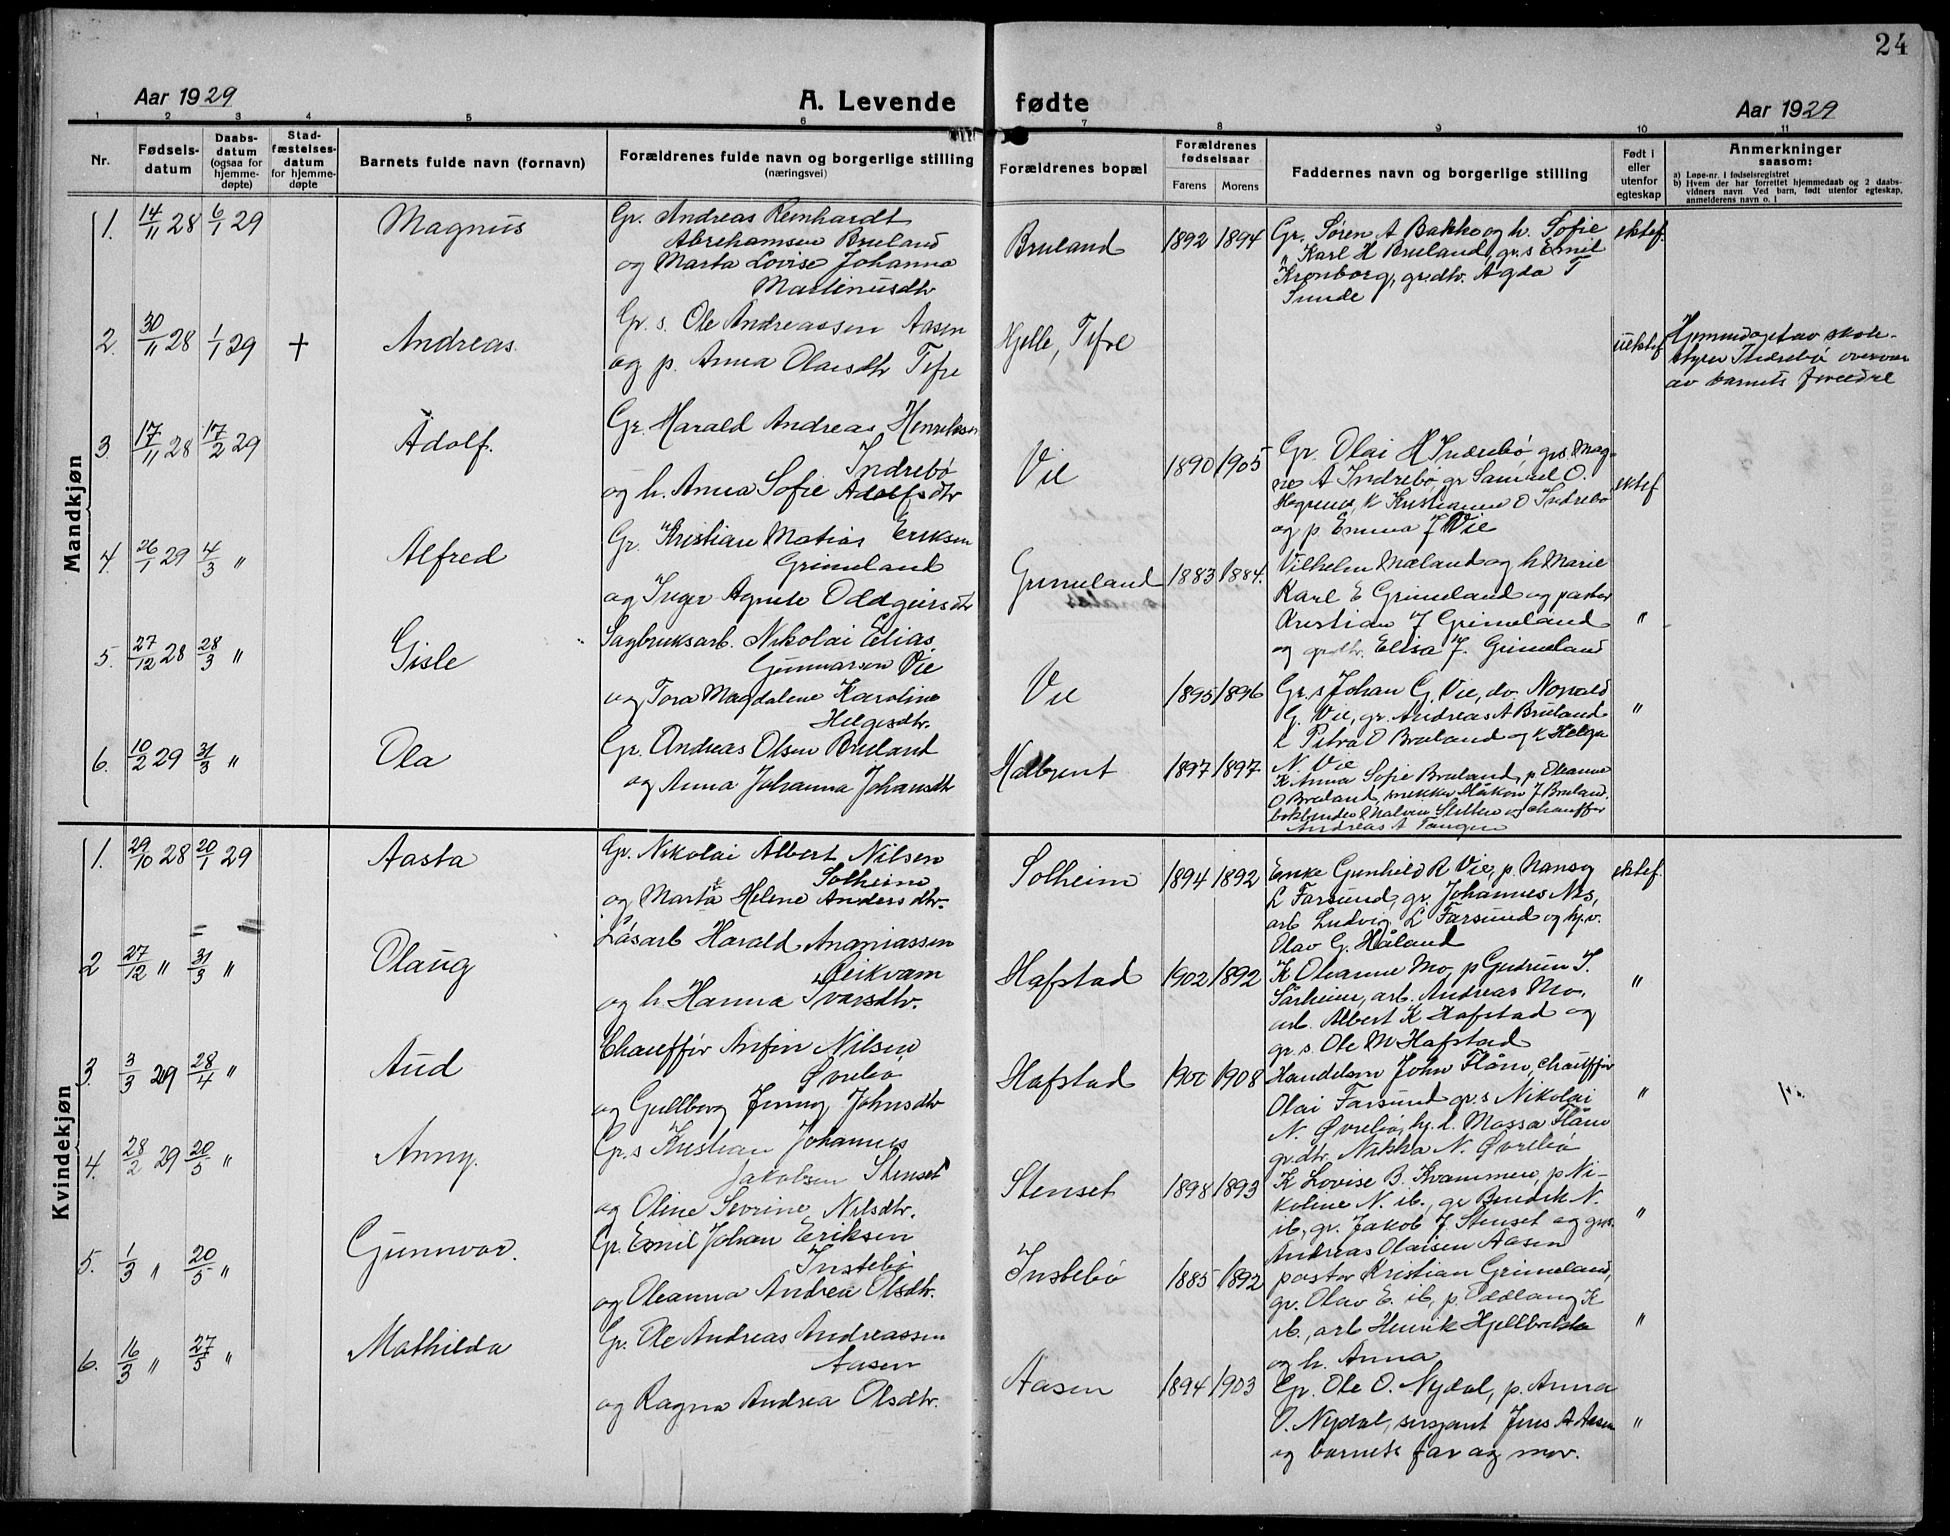 24
Aar 1929
A. Levende fødte
Aar 1929
1 2 3 4 5 6 7 8 9 10 11
Nr.
Fødsels-
datum
Daabs-
datum
(ogsaa for
hjemme-
døpte)
Stad-
fæstelses-
datum
for hjemme-
døpte
Barnets fulde navn (fornavn)
Forældrenes fulde navn og borgerlige stilling
(næringsvei)
Forældrenes bopæl
Forældrenes
fødselsaar
Farens Morens
Faddernes navn og borgerlige stilling
Født i
eller
utenfor
egteskap
Anmerkninger
saasom:
a) Løpe-nr. i fødselsregistret
b) Hvem der har forrettet hjemmedaab og 2 daabs-
vidners navn Ved barn, født utenfor egteskap,
anmelderens navn o. l
Mandkjøn
1. 14/11 28 6/1 29 Magnus
Gr. Andreas Reinhardt
Abrehamsen Bruland
og Marta Lovise Johanna
Martinusdtr
Bruland 1892 1894
Gr. Søren A Bakke og h. Sofie
" Karl H Bruland, gr.s Emil
Kronborg, gr.dtr. Agda T
Sunde
ektef.
2. 30/11 28 1/1 29 + Andreas
Gr. s. Ole Andreassen Aasen
og p. Anna Olaisdtr Tefre
Hjelle, Tefre
uektef
Hjemmedøpt av skole-
styrer Indrebø overvær
av barnets foreldre
3. 17/11 28 17/2 29 Adolf.
Gr. Harald Andreas Henriksen
Indrebø
og h. Anna Sofie Adolfsdtr
Vie 1890 1905
Gr. Olai H Indrebø, grs Mag-
nes A Indrebø, gr Samuel O.
K Kristianne O Indrebø
og p Emma J Vie
ektef
4. 26/1 29 4/3 " Alfred
Gr. Kristian Matias Eriksen
Grimeland
og Inger Agnete Oddgeirsdtr
Grimeland 1883 1884.
Vilhelm Mæland og h Marie
Karl E Grimeland og pastor
Kristian J Grimeland
og gr.dtr. Elisa J. Grimeland
"
5. 27/12 28 28/3 " Gisle
Sagbruksarb. Nikolai Elias
Gunnarson Vie
og Tora Magdalene Karoline
Helgesdtr.
Vie 1895 1896
Gr. s Johan G. Vie, do. Norvald
G. Vie, gr. Andreas A Bruland
k Petra O Bruland og k Helga
N. Vie
"
6. 10/2 29 31/3 " Ola
Gr. Andreas Olsen Bruland
og Anna Johanna Johansdtr
Halbrent 1897 1897
K. Anna Sofie Bruland, p. Oleanne
O Bruland, snekker Håkon J Bruland,
bokbinder Malvin Sletten og chauffør
Andreas A Tangen
Kvindekjøn
1. 29/10 28 20/1 29 Aasta
Gr. Nikolai Albert Nilsen
Solheim
og Marta Helene Andersdtr.
Solheim 1894 1892
Enke Gunhild R Vie, p. Nansy
L Farsund, gr. Johannes Nes,
arb. Ludvig L Farsund og hj.v.
Olav G. Håland
ektef.
2 27/12 " 31/3 " Olaug
Løsarb Harald Ananiassen
Leikvam
og h. Hanna Ivarsdtr.
Hafstad 1902 1892
K Oleanne Mo, p Gudrun I.
Sårheim, arb. Andreas Mo,
arb. Albert K Hafstad og
gr. s. Ole M Hafstad
"
3. 3/3 29 28/4 " Aud
Chauffør Anfin Nilsen
Øvrebø
og Gullborg Jenny Johnsdtr
Hafstad 1908
Handelsm John Flåm, chauffør
Olai Farsund gr.s Nikolai
N. Øvrebø, hj.l. Massa Flåm
gr.dtr. Nikka N. Øvrebø
"
4. 28/2 29 20/5 " Anny.
Gr. s Kristian Johannes
Jakobsen Stenset
og Oline Sevrine Nilsdtr.
Stenset 1898 1893
K Lovise B. Kvammen, p Ni-
koline N. ib., gr Bendik N.
ib., gr. Jakob J Stenset og grs.
Andreas Olaisen Aasen
"
5. 1/3 " 20/5 " Gunnvor.
Gr. Emil Johan Eriksen
Instebø
og Oleanna Andrea Olsdtr.
Instebø 1885 1892
pastor Kristian Grimeland,
gr. Olav E. ib, p. Oddlaug K
ib., arb Henrik Hjellbrekke
og h. Anna
"
6. 16/3 " 27/5 " Mathilda
Gr. Ole Andreas Andreassen
Aasen
og Ragna Andrea Olsdtr.
Aasen 1894 1903
Gr. Ole O. Nydal, p. Anna
O. Nydal, sersjant Jens A Aasen
og barnets far og mor.
"